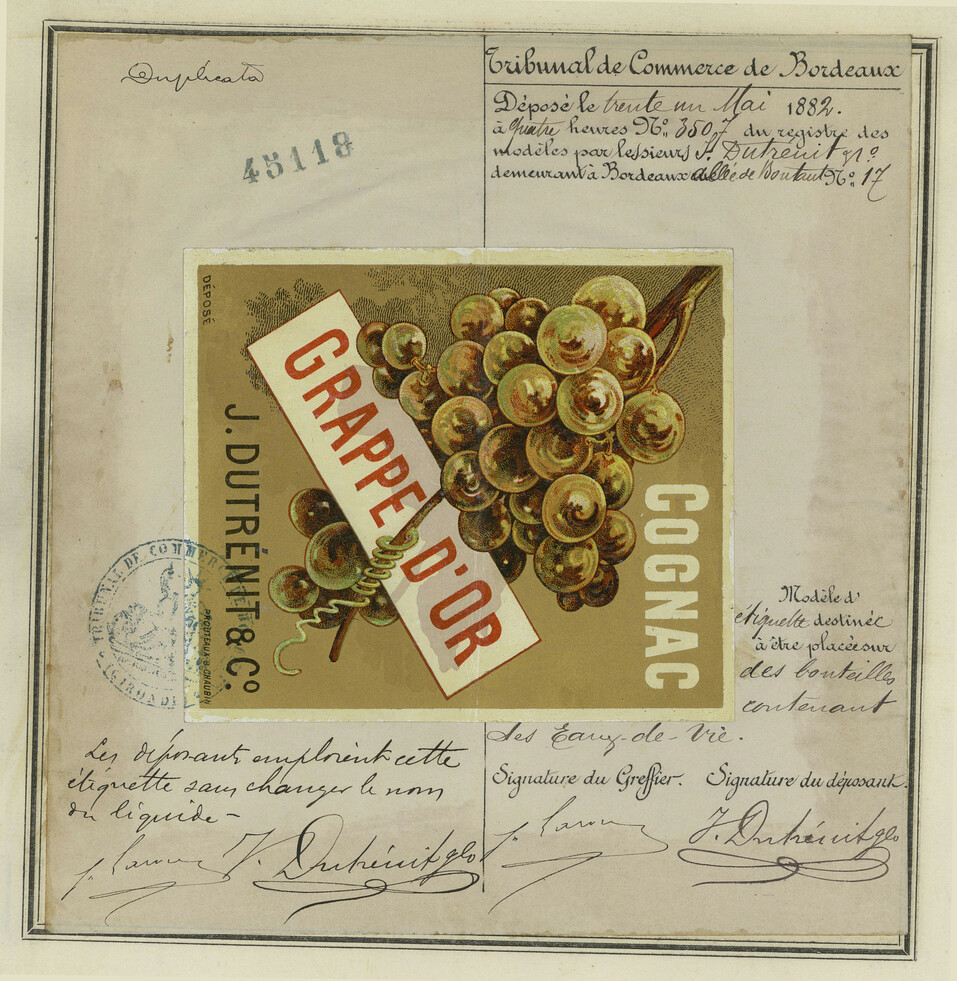 Duplicata
45118
Tribunal de Commerce de Bordeaux
Déposé le trente un Mai 1882.
à quatre heures No. 3507 du registre des
modèles par les sieurs J. Dutrénit & Co
demeurant à Bordeaux allée de Boutaut No. 17
DÉPOSÉ
GRAPPE D'OR
COGNAC
J. DUTRÉNIT & Co.
PROUTEAUX & CHAUBIN
TRIBUNAL DE COMMERCE
(GIRONDE)
Modèle d'
étiquette destinée
à être placée sur
des bouteilles
contenant
des Eaux-de-Vie.
Les déposants emploient cette
étiquette sans changer le nom
du liquide -
Signature du Greffier. Signature du déposant.
J. Dutrénit & Co
J. Dutrénit & Co